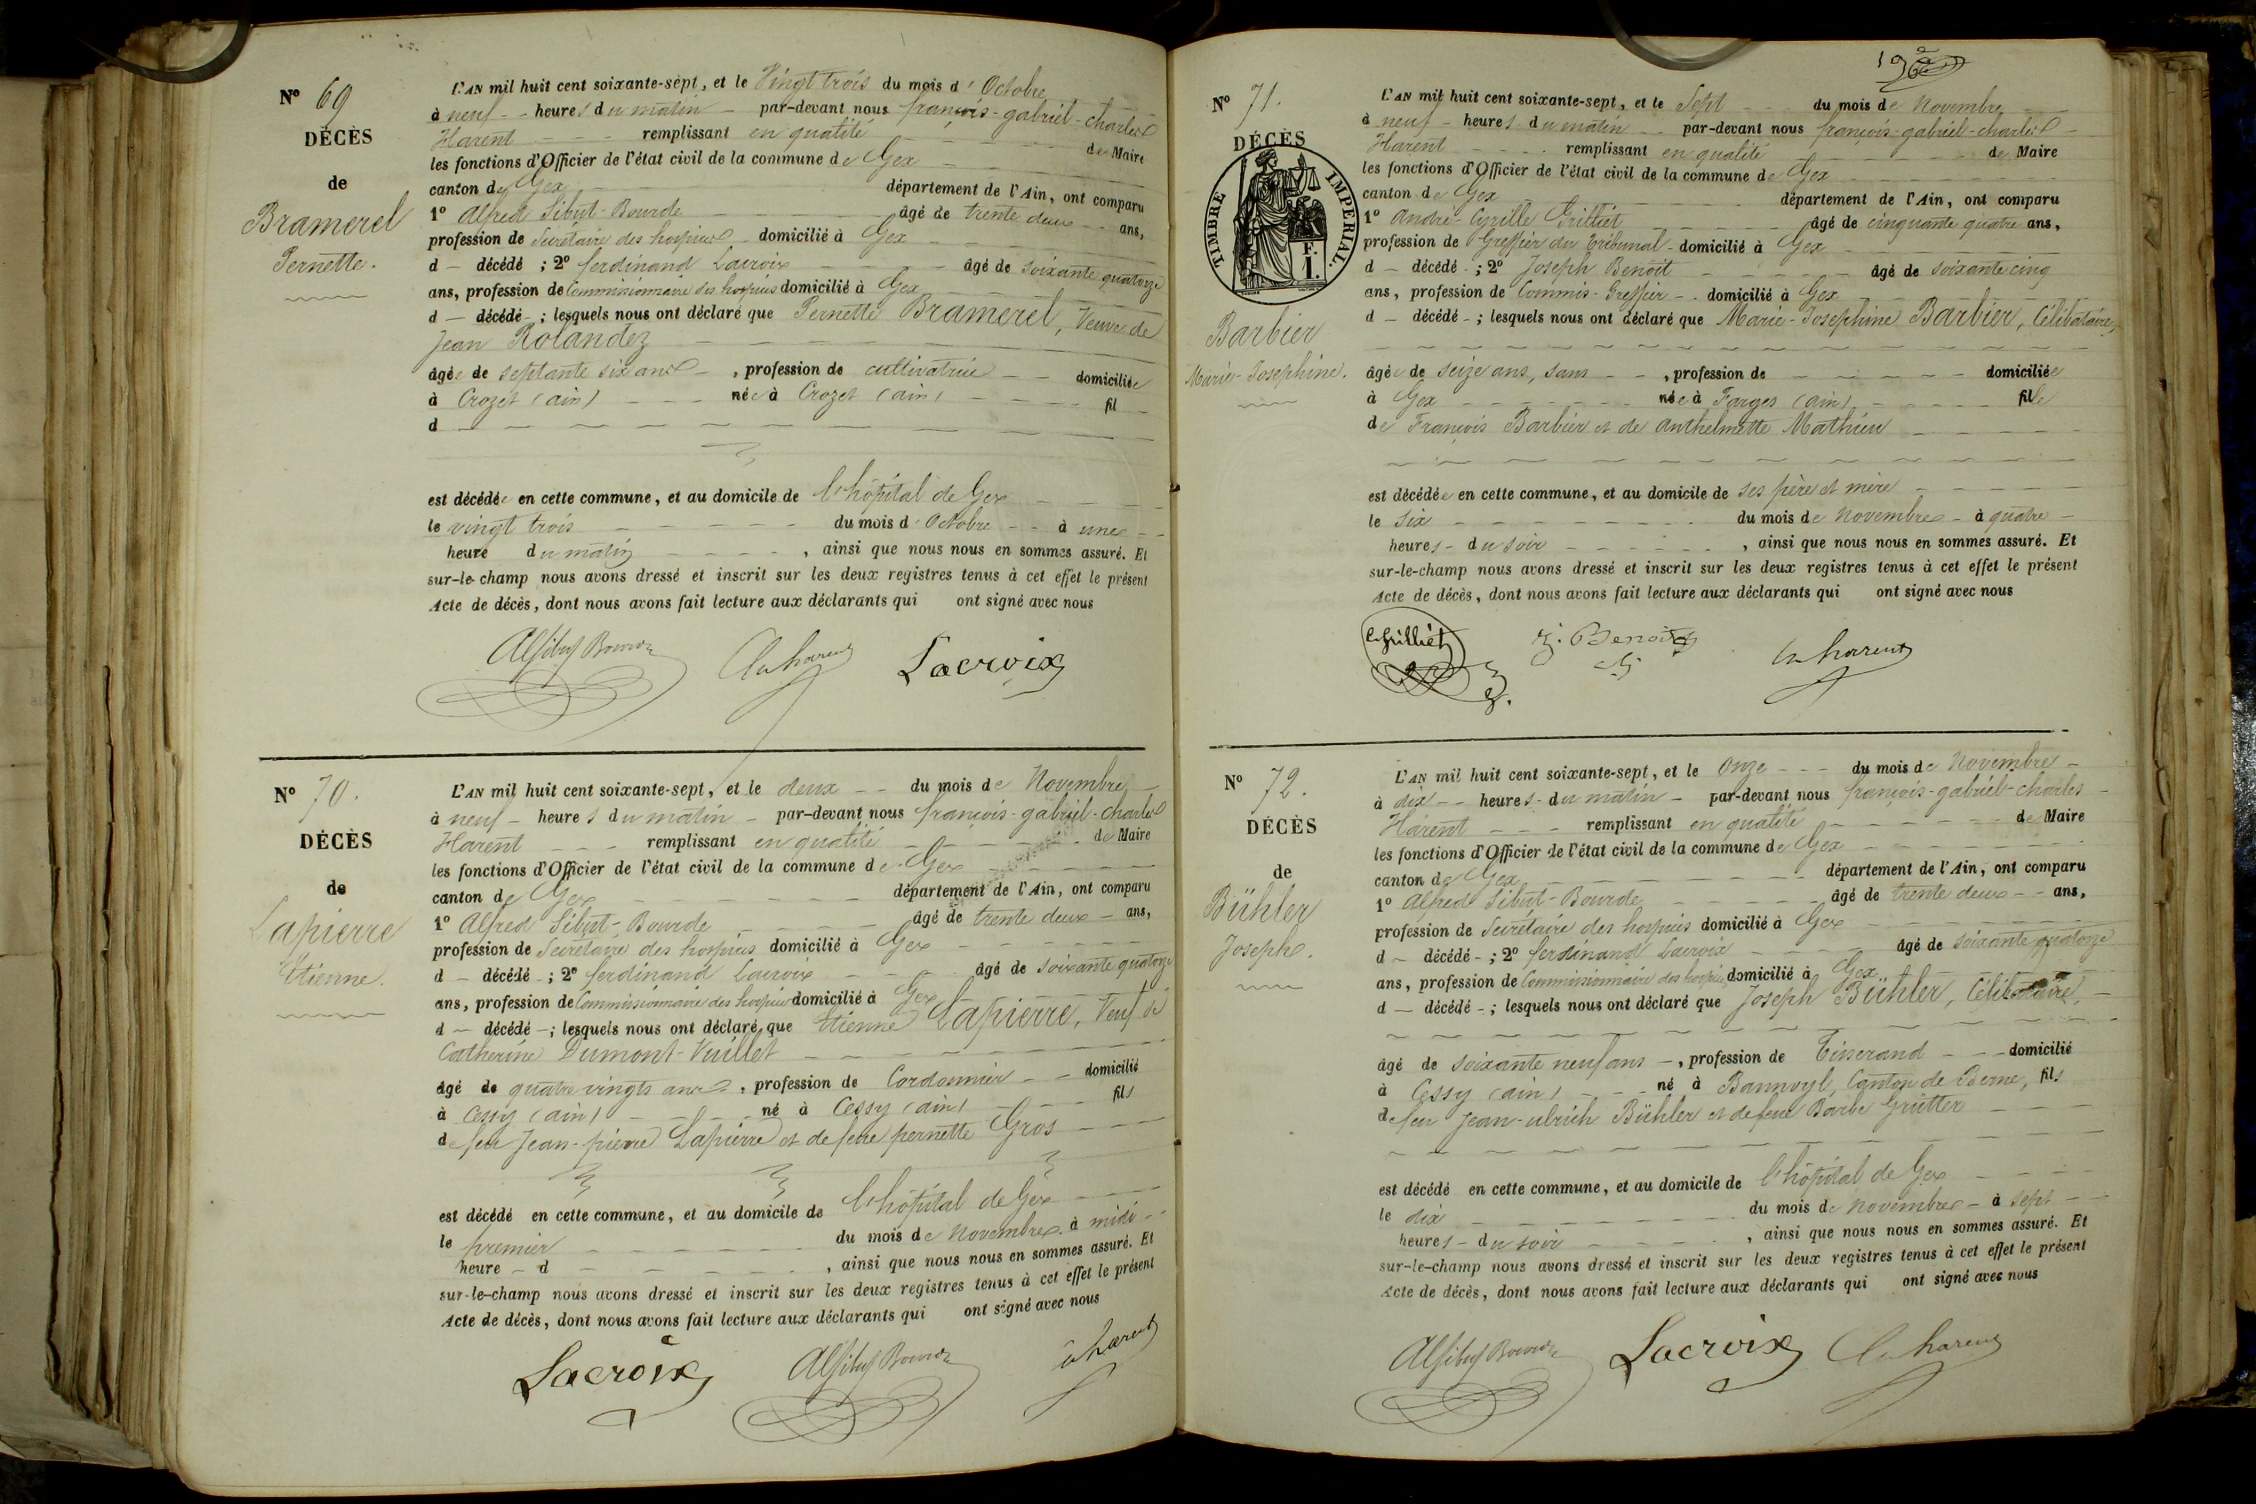 Nº 69
DÉCÈS
de
Bramerel
Pernette.
L'AN mil huit cent soixante-sept, et le Vingt trois du mois d'Octobre
à neuf heures du matin par-devant nous françois-gabriel-charles
Harent remplissant en qualité de Maire
les fonctions d'Officier de l'état civil de la commune de Gex
canton de Gex département de l'Ain, ont comparu
1º Alfred Sibut-Bourde âgé de trente deux ans,
profession de Secrétaire des hospices domicilié à Gex
d décédé ; 2º ferdinand Lacroix âgé de soixante quatorze
ans, profession de Commissionnaire des hospices domicilié à Gex
d décédé ; lesquels nous ont déclaré que Pernette Bramerel, Veuve de
Jean Rolandez
âgée de septante six ans, profession de cultivatrice domiciliée
à Crozet (ain) née à Crozet (ain) fil
d
est décédée en cette commune, et au domicile de l'hôpital de Gex
le vingt trois du mois d'Octobre à une
heure du matin, ainsi que nous nous en sommes assuré. Et
sur-le-champ nous avons dressé et inscrit sur les deux registres tenus à cet effet le présent
Acte de décès, dont nous avons fait lecture aux déclarants qui ont signé avec nous
Alf Sibut Bourde Ch harent Lacroix
Nº 70.
DÉCÈS
de
Lapierre
Etienne.
L'AN mil huit cent soixante-sept, et le deux du mois de Novembre
à neuf heures du matin par-devant nous françois-gabriel-charles
Harent remplissant en qualité de Maire
les fonctions d'Officier de l'état civil de la commune de Gex
canton de Gex département de l'Ain, ont comparu
1º Alfred Sibut-Bourde âgé de trente deux ans,
profession de Secrétaire des hospices domicilié à Gex
d décédé ; 2º ferdinand Lacroix âgé de soixante quatorze
ans, profession de Commissionnaire des hospices domicilié à Gex
d décédé ; lesquels nous ont déclaré que Etienne Lapierre, Veuf de
Catherine Dumont-Vuillet
âgé de quatre vingts ans, profession de Cordonnier domicilié
à Cessy (ain) né à Cessy (ain) fils
de feu Jean-pierre Lapierre et de feue pernette Gros
est décédé en cette commune, et au domicile de l'hôpital de Gex
le premier du mois de Novembre à midi
heure d , ainsi que nous nous en sommes assuré. Et
sur-le-champ nous avons dressé et inscrit sur les deux registres tenus à cet effet le présent
Acte de décès, dont nous avons fait lecture aux déclarants qui ont signé avec nous
Lacroix Alf Sibut Bourde Ch harent
Nº 71.
DÉCÈS
TIMBRE IMPÉRIAL.
F.
1.
Barbier
Marie-Josephine.
L'AN mil huit cent soixante-sept, et le Sept du mois de Novembre
à neuf heures du matin par-devant nous françois-gabriel-charles
Harent remplissant en qualité de Maire
les fonctions d'Officier de l'état civil de la commune de Gex
canton de Gex département de l'Ain, ont comparu
1º André-Cyrille Grilliet âgé de cinquante quatre ans,
profession de Greffier du tribunal domicilié à Gex
d décédé ; 2º Joseph Benoit âgé de soixante cinq
ans, profession de Commis-Greffier domicilié à Gex
d décédé ; lesquels nous ont déclaré que Marie-Josephine Barbier, Célibataire,
âgée de seize ans, sans , profession de domiciliée
à Gex née à Farges (ain) fille
de François Barbier et de anthelmette Mathieu
est décédée en cette commune, et au domicile de ses père et mère
le six du mois de Novembre à quatre
heures du soir , ainsi que nous nous en sommes assuré. Et
sur-le-champ nous avons dressé et inscrit sur les deux registres tenus à cet effet le présent
Acte de décès, dont nous avons fait lecture aux déclarants qui ont signé avec nous
C. Grilliet J. Benoit Ch harent
Nº 72.
DÉCÈS
de
Bühler
Joseph.
L'AN mil huit cent soixante-sept, et le Onze du mois de Novembre
à dix heures du matin par-devant nous françois-gabriel-charles
Harent remplissant en qualité de Maire
les fonctions d'Officier de l'état civil de la commune de Gex
canton de Gex département de l'Ain, ont comparu
1º Alfred Sibut-Bourde âgé de trente deux ans,
profession de Secrétaire des hospices domicilié à Gex
d décédé ; 2º ferdinand Lacroix âgé de soixante quatorze
ans, profession de Commissionnaire des hospices domicilié à Gex
d décédé ; lesquels nous ont déclaré que Joseph Bühler, Célibataire,
âgé de soixante neuf ans, profession de Tisserand domicilié
à Cessy (ain) né à Bannvyl, Canton de Berne, fils
de feu Jean-ulrich Bühler et de feue Barbe Grütter
est décédé en cette commune, et au domicile de l'hôpital de Gex
le dix du mois de Novembre à sept
heures du soir , ainsi que nous nous en sommes assuré. Et
sur-le-champ nous avons dressé et inscrit sur les deux registres tenus à cet effet le présent
Acte de décès, dont nous avons fait lecture aux déclarants qui ont signé avec nous
Alf Sibut Bourde Lacroix Ch harent